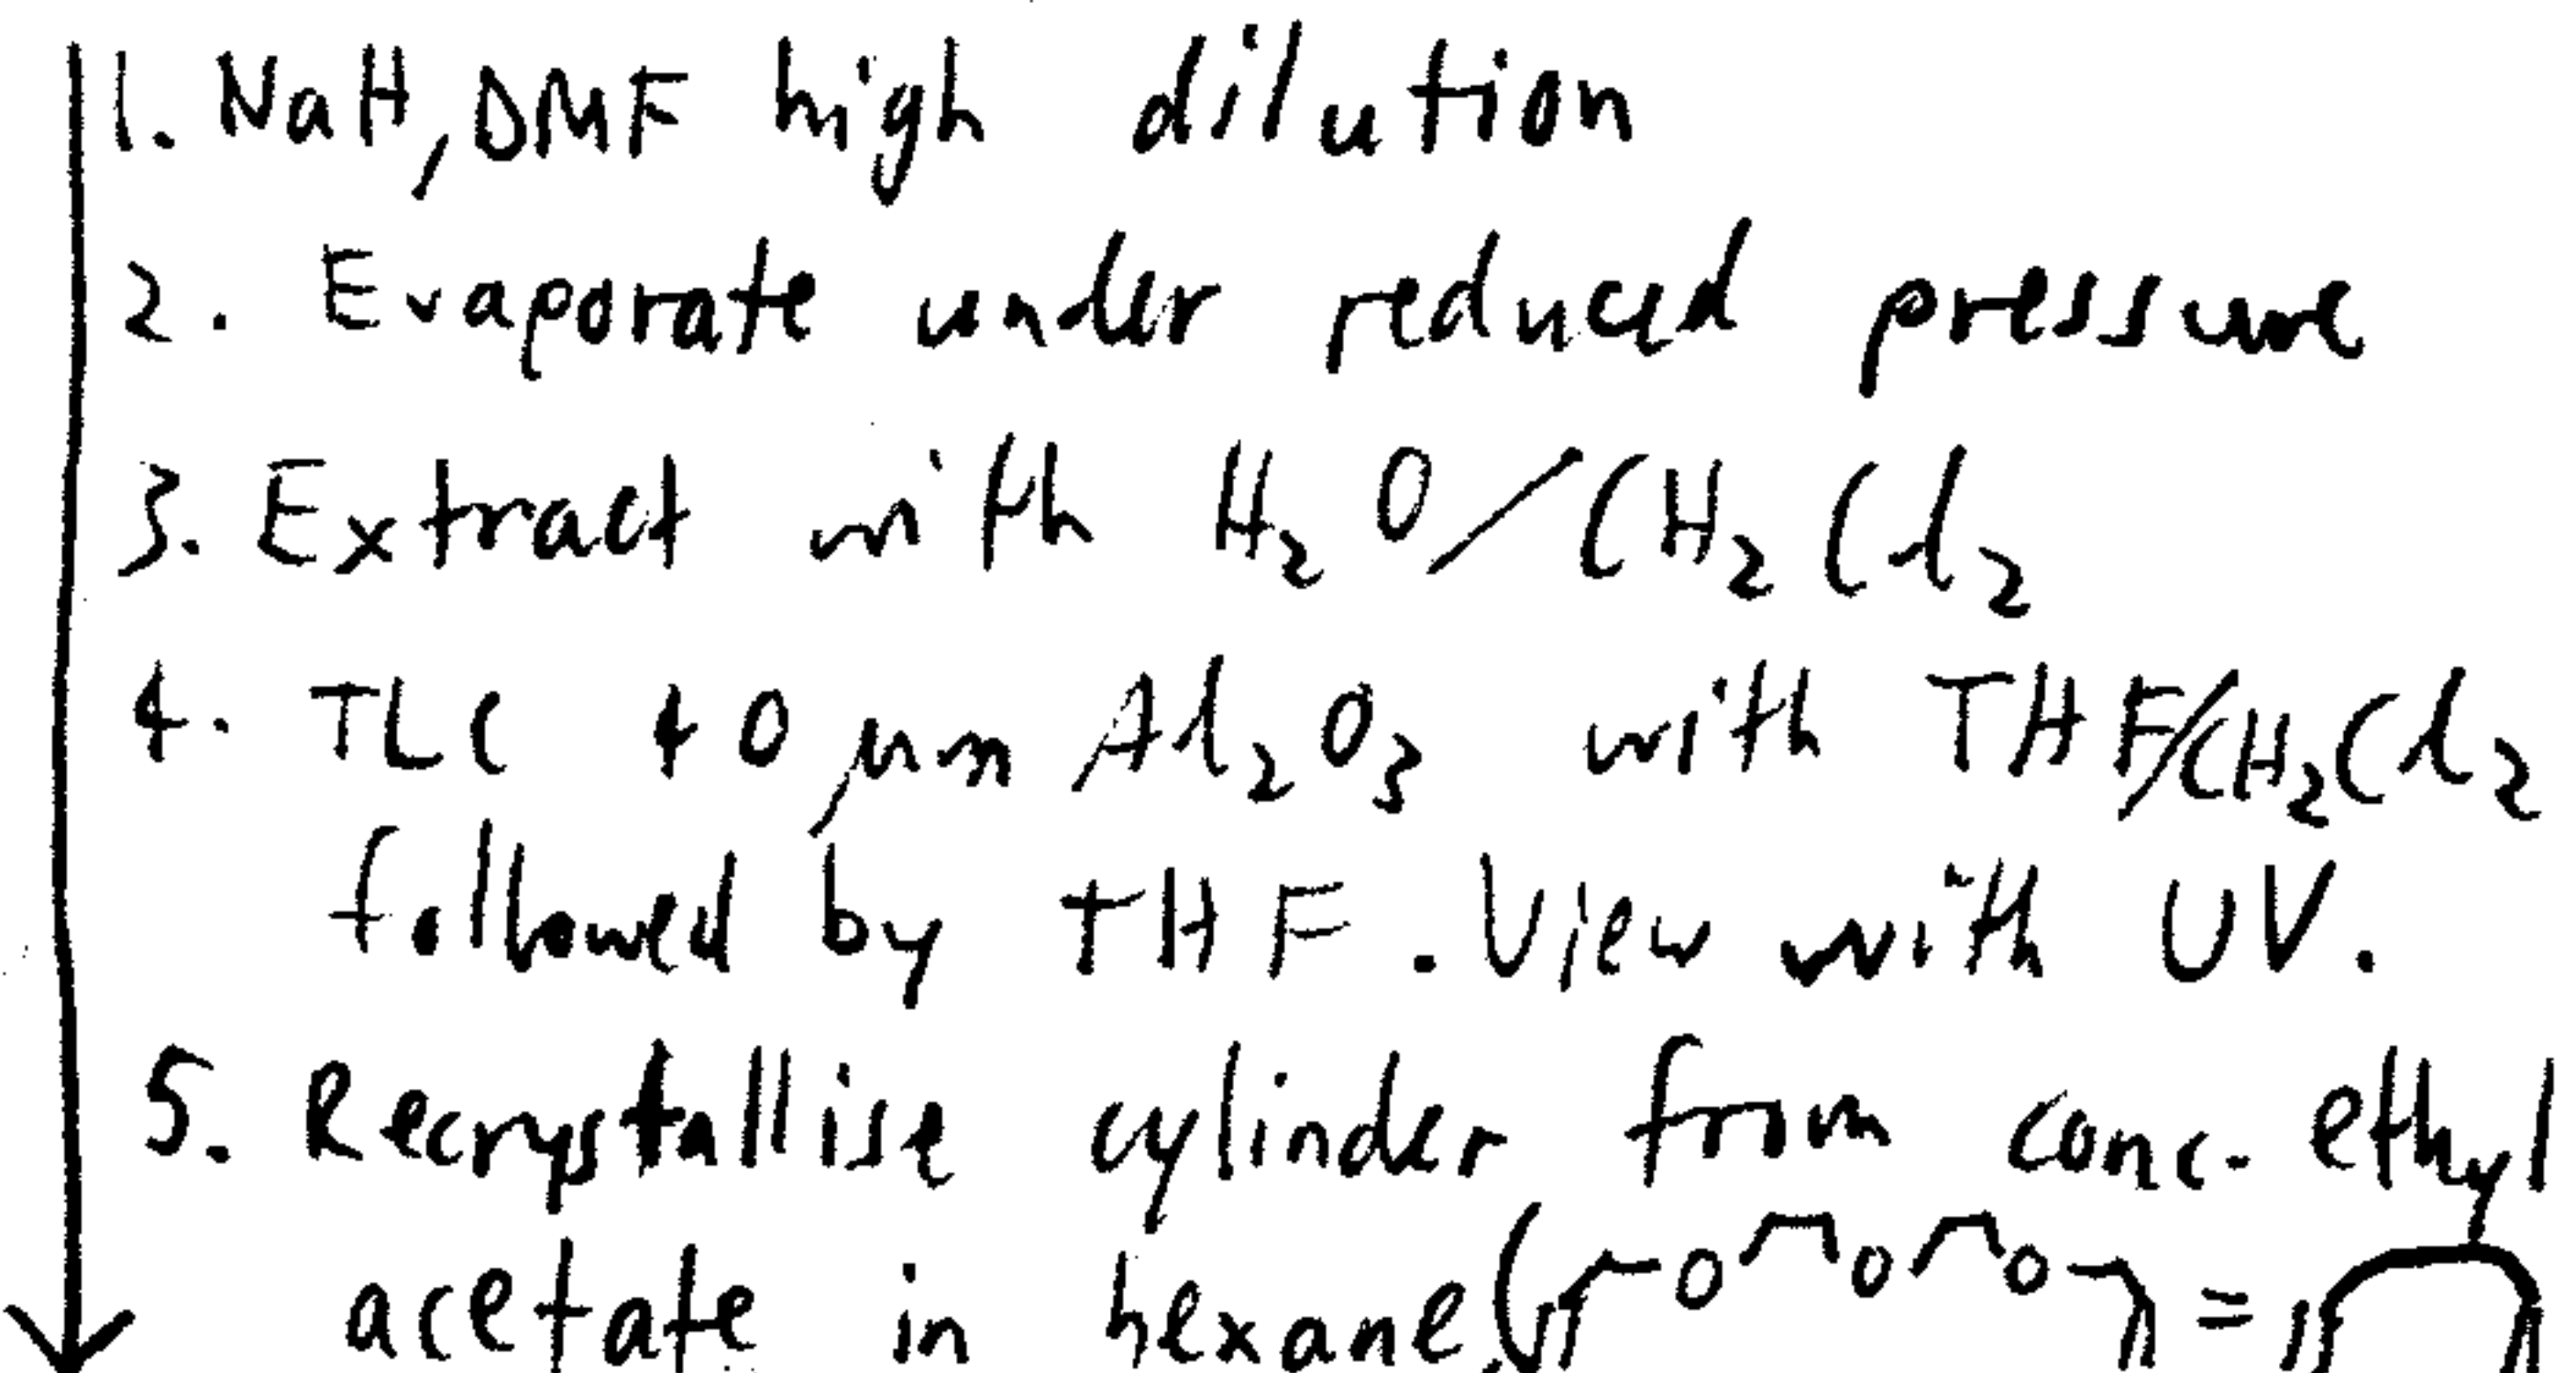 1. NaH, DMF high dilution
2. Evaporate under reduced pressure
3. Extract with H₂O/CH₂Cl₂
4. TLC 40 µm Al₂O₃ with THF/CH₂Cl₂
followed by THF. View with UV.
5. Recrystallise cylinder from conc. ethyl
acetate in hexane. ( O O O =